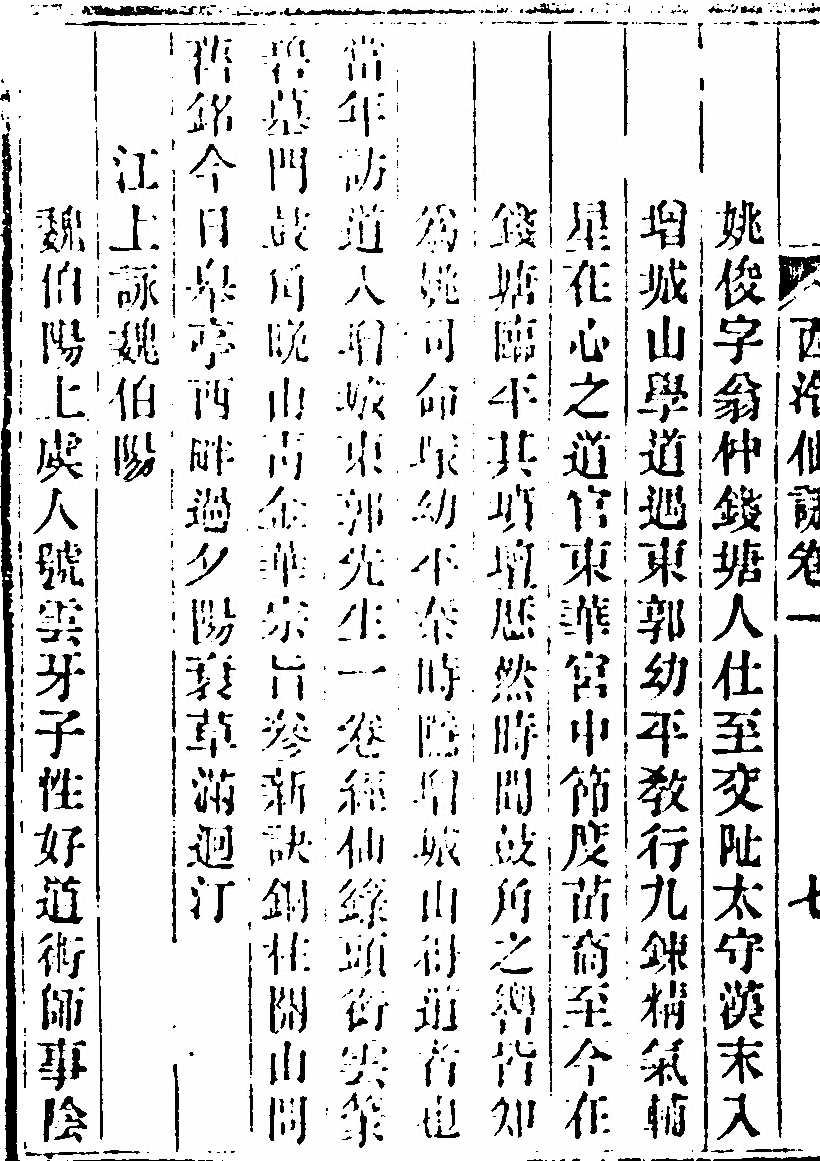 西泠仙詠卷一
七
姚俊字翁仲錢塘人仕至交阯太守漢末入
增城山學道遇東郭幼平教行九鍊精氣輔
星在心之道官東華宮中節度苗裔至今在
錢塘臨平其墳壇歷然時聞鼓角之響皆知
為姚司命塚幼平秦時隱增城山得道者也
當年訪道入增城東郭先生一卷經仙籙頭銜雲篆
碧墓門鼓角晚山青金華宗旨參新訣銅柱關山問
舊銘今日皋亭西畔過夕陽衰草滿迴汀
江上詠魏伯陽
魏伯陽上虞人號雲牙子性好道術師事陰